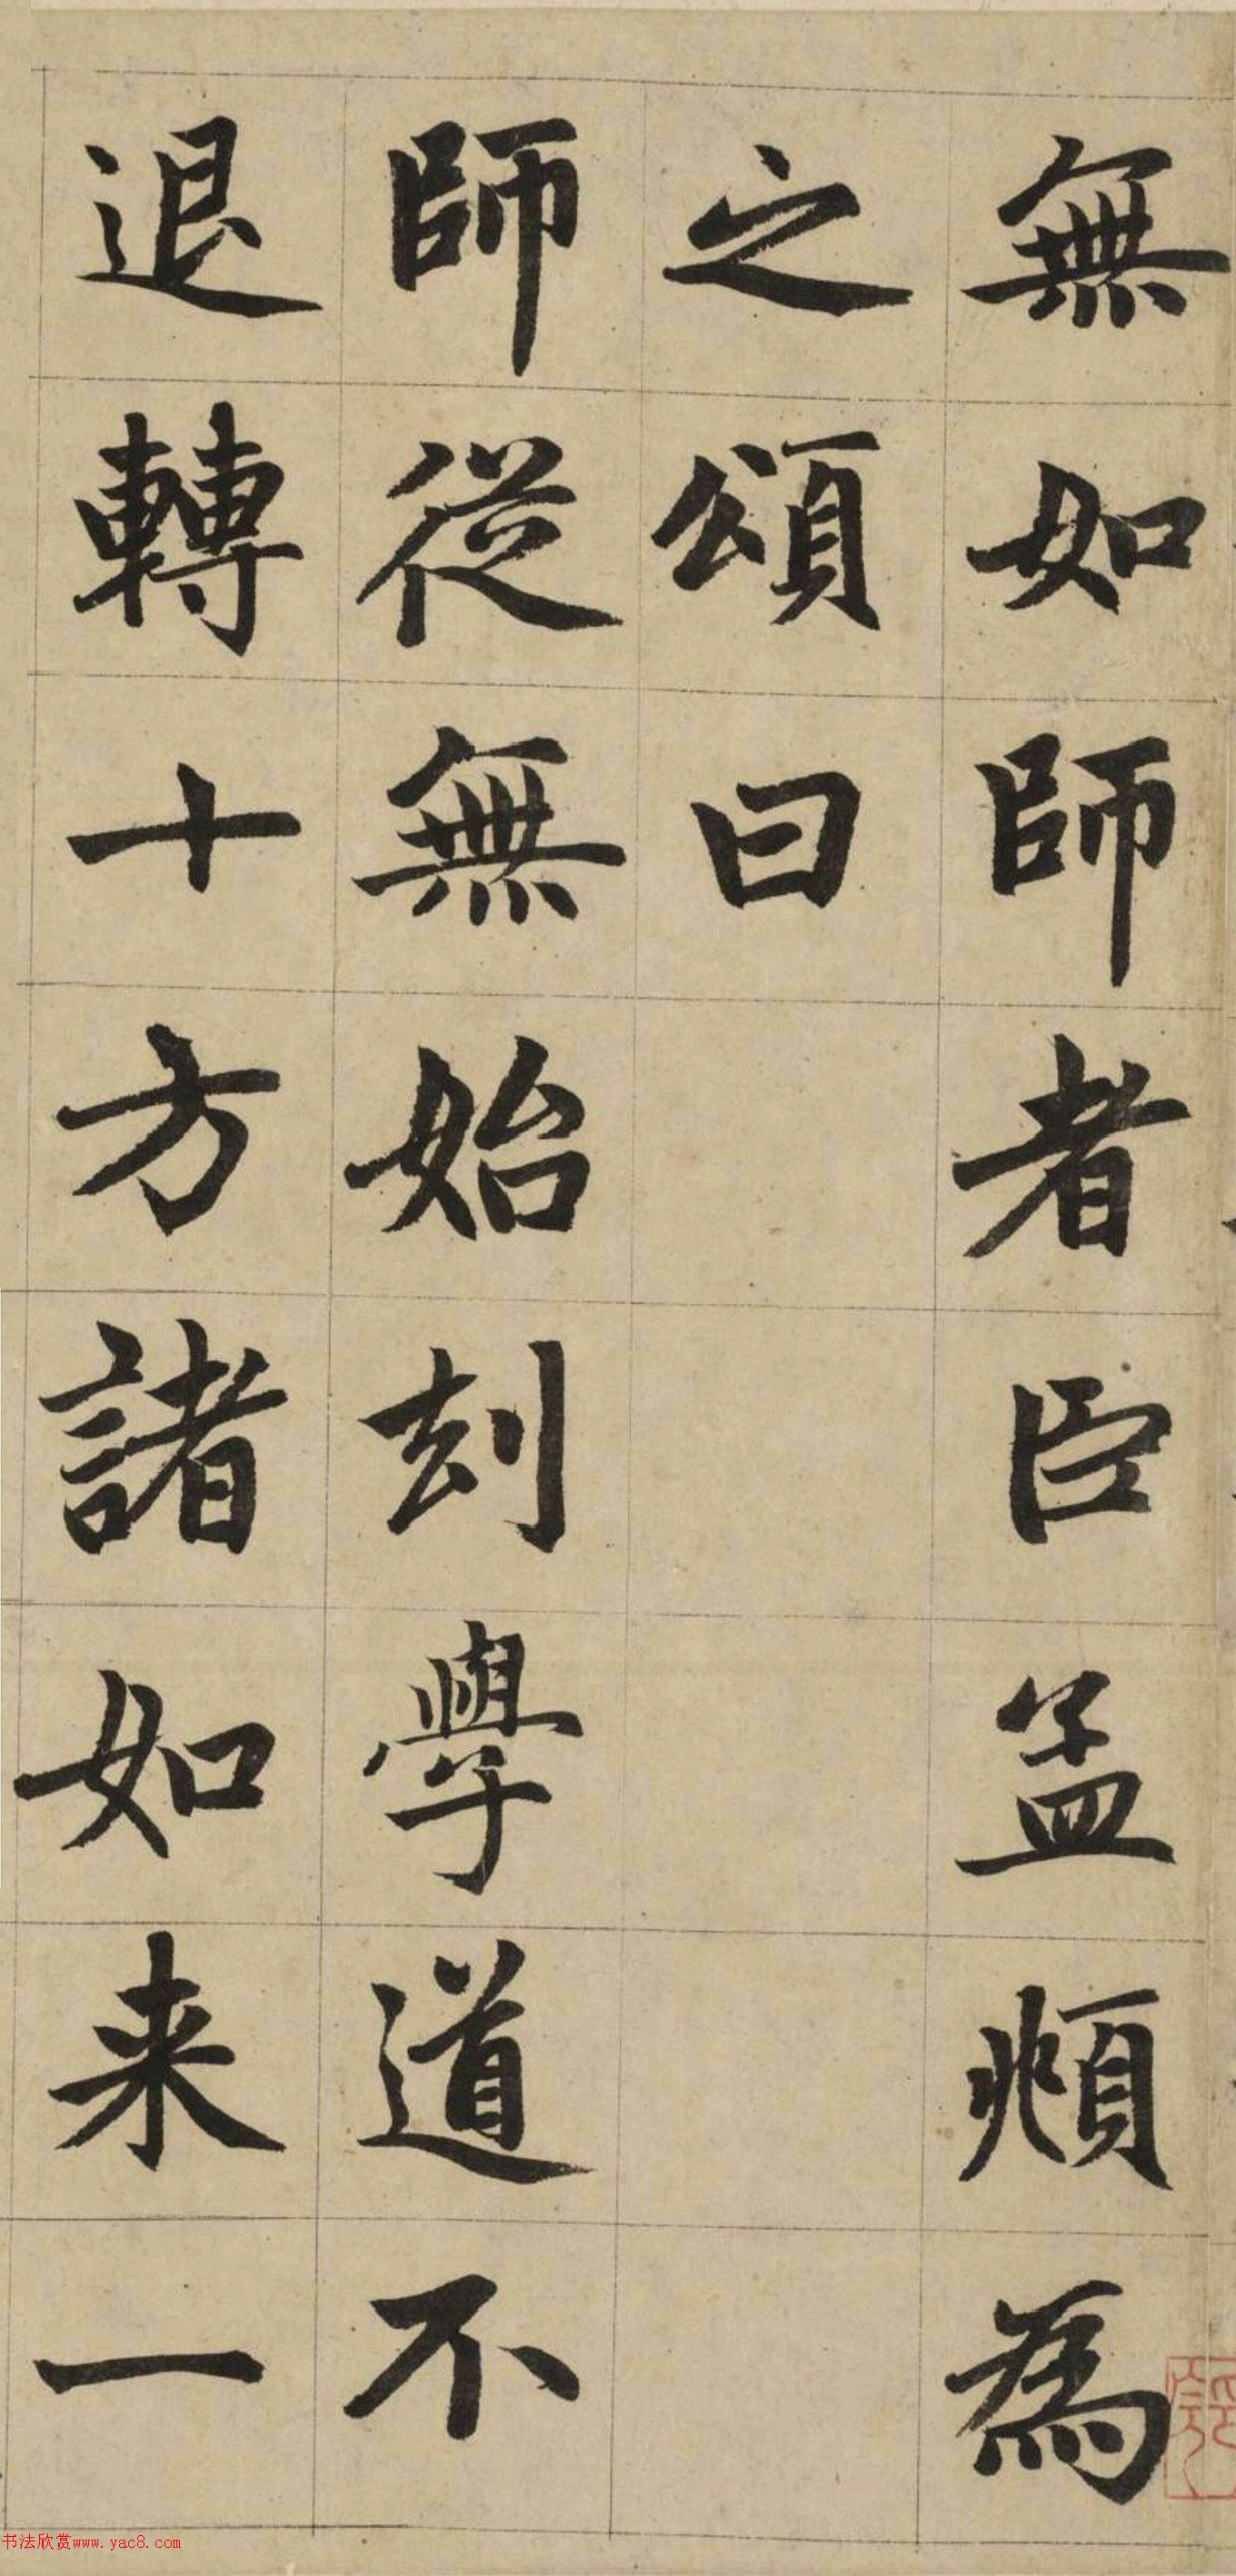 無如師者臣孟頫為
之頌曰
師從無始刼學道不
退轉十方諸如来一
书法欣赏www.yac8.com